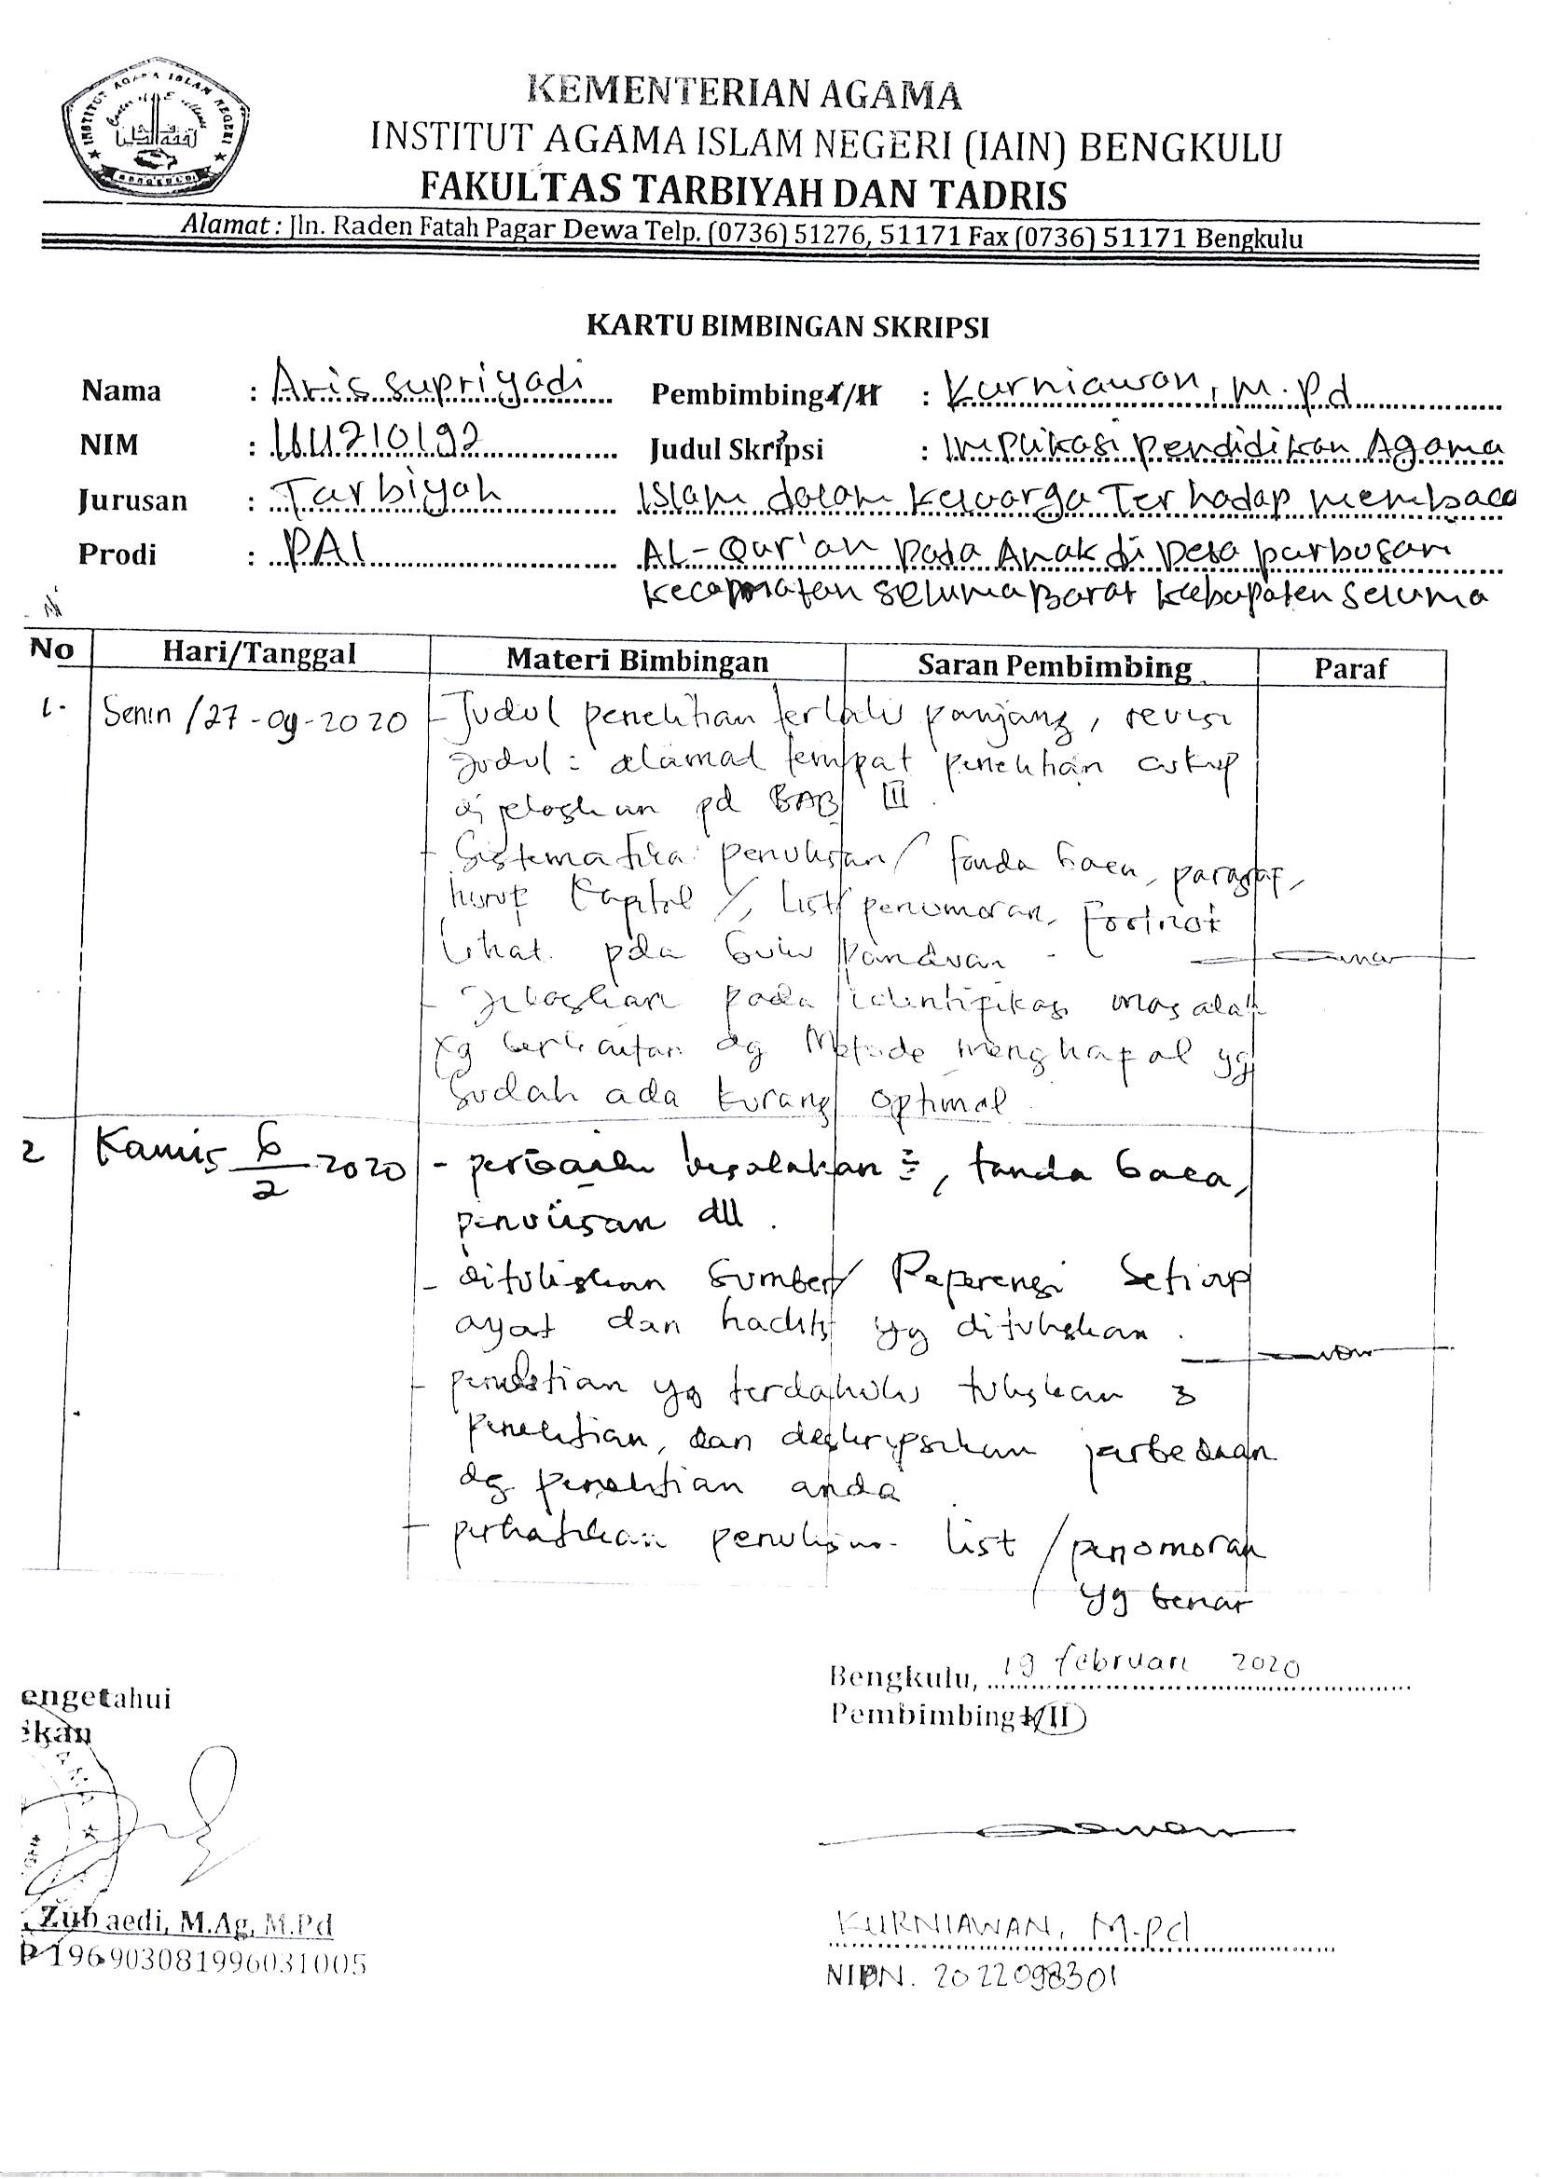 INSTITUT AGAMA ISLAM NEGERI
BENGKULU
KEMENTERIAN AGAMA
INSTITUT AGAMA ISLAM NEGERI (IAIN) BENGKULU
FAKULTAS TARBIYAH DAN TADRIS
Alamat : Jln. Raden Fatah Pagar Dewa Telp. (0736) 51276, 51171 Fax (0736) 51171 Bengkulu
KARTU BIMBINGAN SKRIPSI
Nama : Aris supriyadi Pembimbing I/II : Kurniawan, M.Pd
NIM : 1611210192 Judul Skripsi : Implikasi pendidikan Agama
Jurusan : Tarbiyah Islam dalam keluarga Terhadap membaca
Prodi : PAI AL-Qur'an pada Anak di Desa purbosari
kecamatan seluma Barat kabupaten seluma
No Hari/Tanggal Materi Bimbingan Saran Pembimbing Paraf
1. Senin /27-09-2020 - Judul penelitian terlalu panjang, revisi
Judul : alamat tempat penelitian cukup
di jelaskan pd BAB III.
- Sistematika penulisan / tanda baca, paragraf,
huruf kapital /, list/penomoran, Footnot
lihat pda buku panduan -
- Jelaskan pada identifikasi masalah
yg berkaitan dg Metode menghapal yg
sudah ada kurang optimal.
2 Kamis 6/2 2020 - perbaiki kesalahan =, tanda baca,
penulisan dll.
- dituliskan Sumber/ Reperensi Setiap
ayat dan hadits yg dituliskan.
- penelitian yg terdahulu tuliskan 3
penelitian, dan deskripsikan perbedaan
dg penelitian anda
- perhatikan penulisan list / penomoran
yg benar
Bengkulu, 19 februari 2020
engetahui
Pembimbing I/II
ekan
Zubaedi, M.Ag, M.Pd
KURNIAWAN, M.Pd
P 196903081996031005
NIDN. 2022098301